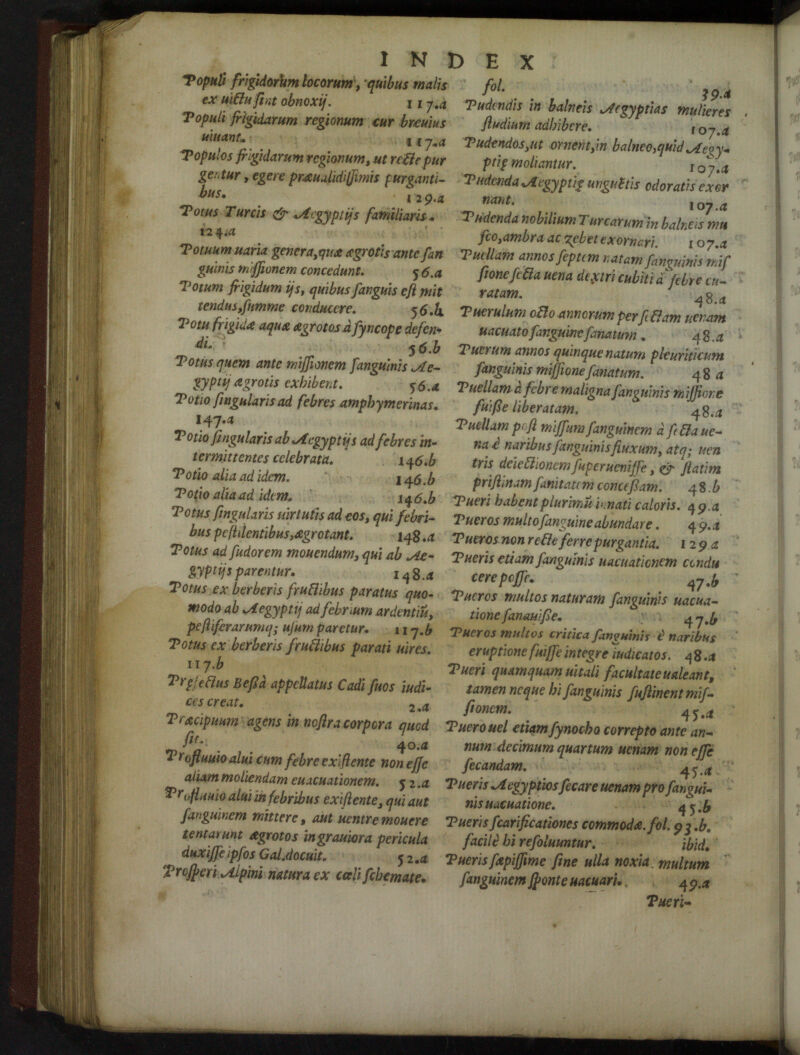 INDEX
Populi frigidorum locorum, quibus malis
ex uictu sint obnoxij. 117.a
Populi frigidarum regionum cur breuius
uiuant. 117.a
Populos frigidarum regionum, ut recte pur
gentur, egere præualidissimis purganti-
bus. 129.a
Potus Turcis & Aegyptijs familiaris.
124.a
Potuum uaria genera, quæ ægrotis ante san
guinis missionem concedunt. 56.a
Potum frigidum ijs, quibus sanguis est mit
tendus, summe conducere. 56.b
Potu frigidæ aquæ ægrotos à syncope defen-
di. 56.b
Potus quem ante missionem sanguinis Ae-
gyptij ægrotis exhibent. 56.a
Potio singularis ad febres amphymerinas.
147.a
Potio singularis ab Aegyptijs ad febres in-
termittentes celebrata. 146.b
Potio alia ad idem. 146.b
Potio alia ad idem. 146.b
Potus singularis uirtutis ad eos, qui febri-
bus pestilentibus, ægrotant. 148.a
Potus ad sudorem mouendum, qui ab Ae-
gyptijs parentur. 148.a
Potus ex berberis fructibus paratus quo-
modo ab Aegyptij ad febrium ardentiū,
pestiferarumq; usum paretur. 117.b
Potus ex berberis fructibus parati uires.
117.b
Præfectus Bessà appellatus Cadi suos iudi-
ces creat. 2.a
Præcipuum agens in nostra corpora quod
sit. 40.a
Profluuio alui cum febre existente non esse
aliam moliendam euacuationem. 52.a
Profluuio alui in febribus existente, qui aut
sanguinem mittere, aut uentre mouere
tentarunt ægrotos in grauiora pericula
duxisse ipsos Gal. docuit. 52.a
Prosperi Alpini natura ex cœli schemate.
fol. 39.a
Pudendis in balneis Aegyptias mulieres
studium adhibere. 107.a
Pudendos, ut ornent, in balneo, quid Aegy-
ptiæ moliantur. 107.a
Pudenda Aegyptiæ unguētis odoratis exor
nant. 107.a
Pudenda nobilium Turcarum in balneis mu
sco, ambra ac zebet exornari. 107.a
Puellam annos septem natam sanguinis mis
sione secta uena dextri cubiti à febre cu-
ratam. 48.a
Puerulum octo annorum per sectam uenam
uacuato sanguine sanatum. 48.a
Puerum annos quinque natum pleuriticum
sanguinis missione sanatum. 48 a
Puellam à febre maligna sanguinis missione
fuisse liberatam. 48.a
Puellam post missum sanguinem à secta ue-
na è naribus sanguinis fluxum, atq; uen
tris deiectionem superuenisse, & statim
pristinam sanitatem concessam. 48.b
Pueri habent plurimū innati caloris. 49.a
Pueros multo sanguine abundare. 49.a
Pueros non recte ferre purgantia. 129 a
Pueris etiam sanguinis uacuationem condu
cere posse. 47.b
Pueros multos naturam sanguinis uacua-
tione sanauisse. 47.b
Pueros multos critica sanguinis è naribus
eruptione fuisse integre iudicatos. 48.a
Pueri quamquam uitali facultate ualeant,
tamen neque hi sanguinis sustinent mis-
sionem. 45.a
Puero uel etiam synocho correpto ante an-
num decimum quartum uenam non esse
secandam. 45.a
Pueris Aegyptios secare uenam pro sangui-
nis uacuatione. 45.b
Pueris scarificationes commodæ. fol. 93.b.
facilè hi resoluuntur. ibid.
Pueris sæpissime sine ulla noxia multum
sanguinem sponte uacuari. 49.a
Pueri-